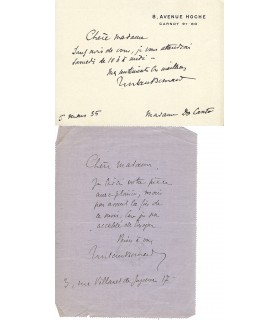 8, AVENUE HOCHE
CARNOT 91-98
Chère madame
Sans avis de vous, je vous attendrai
Samedi de 10 à midi —
Mes sentiments les meilleurs
Tristan Bernard
5 mars 35 Madame Do Canto
Chère madame,
Je lirai votre pièce
avec plaisir, mais
pas avant la fin de
ce mois. Car je suis
accablé de
Bien à vous
Tristan Bernard
3, rue Villaret de Joyeuse 17e